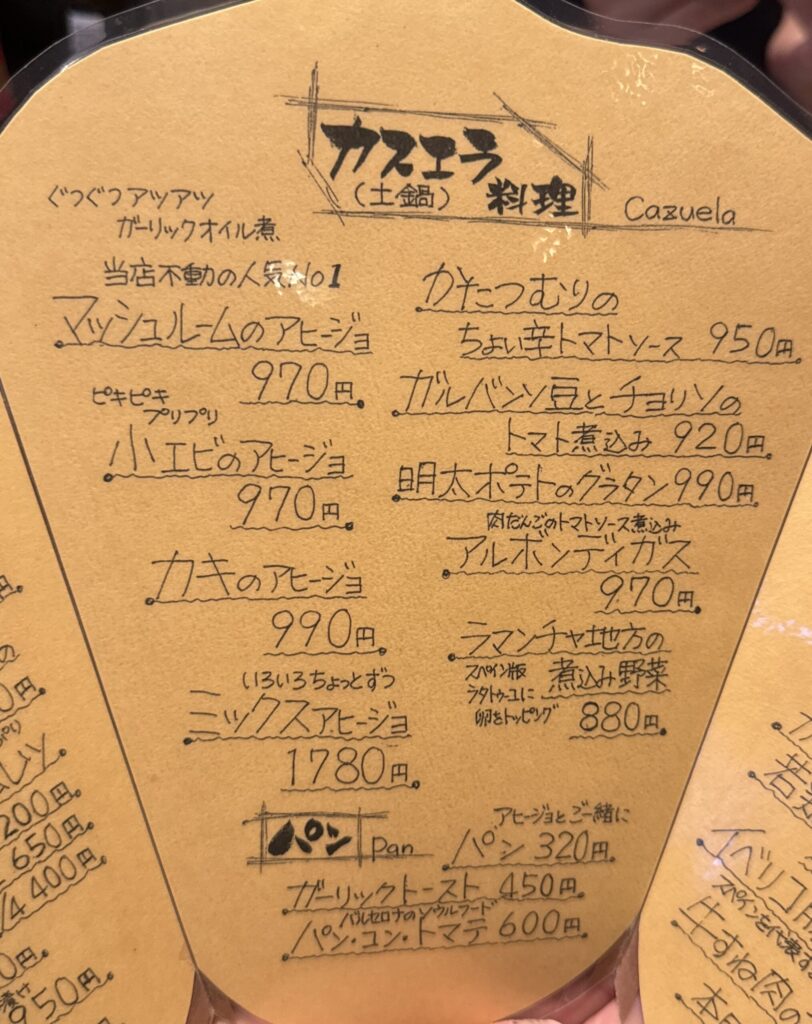 カスエラ
（土鍋）料理
Cazuela
ぐつぐつアツアツ
ガーリックオイル煮
当店不動の人気No1
マッシュルームのアヒージョ
970円
ピキピキ
プリプリ
小エビのアヒージョ
970円
カキのアヒージョ
990円
いろいろちょっとずつ
ミックスアヒージョ
1780円
かたつむりの
ちょい辛トマトソース 950円
ガルバンソ豆とチョリソの
トマト煮込み 920円
明太ポテトのグラタン 990円
肉だんごのトマトソース煮込み
アルボンディガス
970円
ラマンチャ地方の
煮込み野菜
スペイン版
ラタトゥーユに
卵をトッピング
880円
パン
Pan
アヒージョとご一緒に
パン 320円
ガーリックトースト 450円
バルセロナのソウルフード
パン・コン・トマテ 600円
200円
650円
1/4 400円
950円
イベリコ
スペインを代表する
牛すね肉の